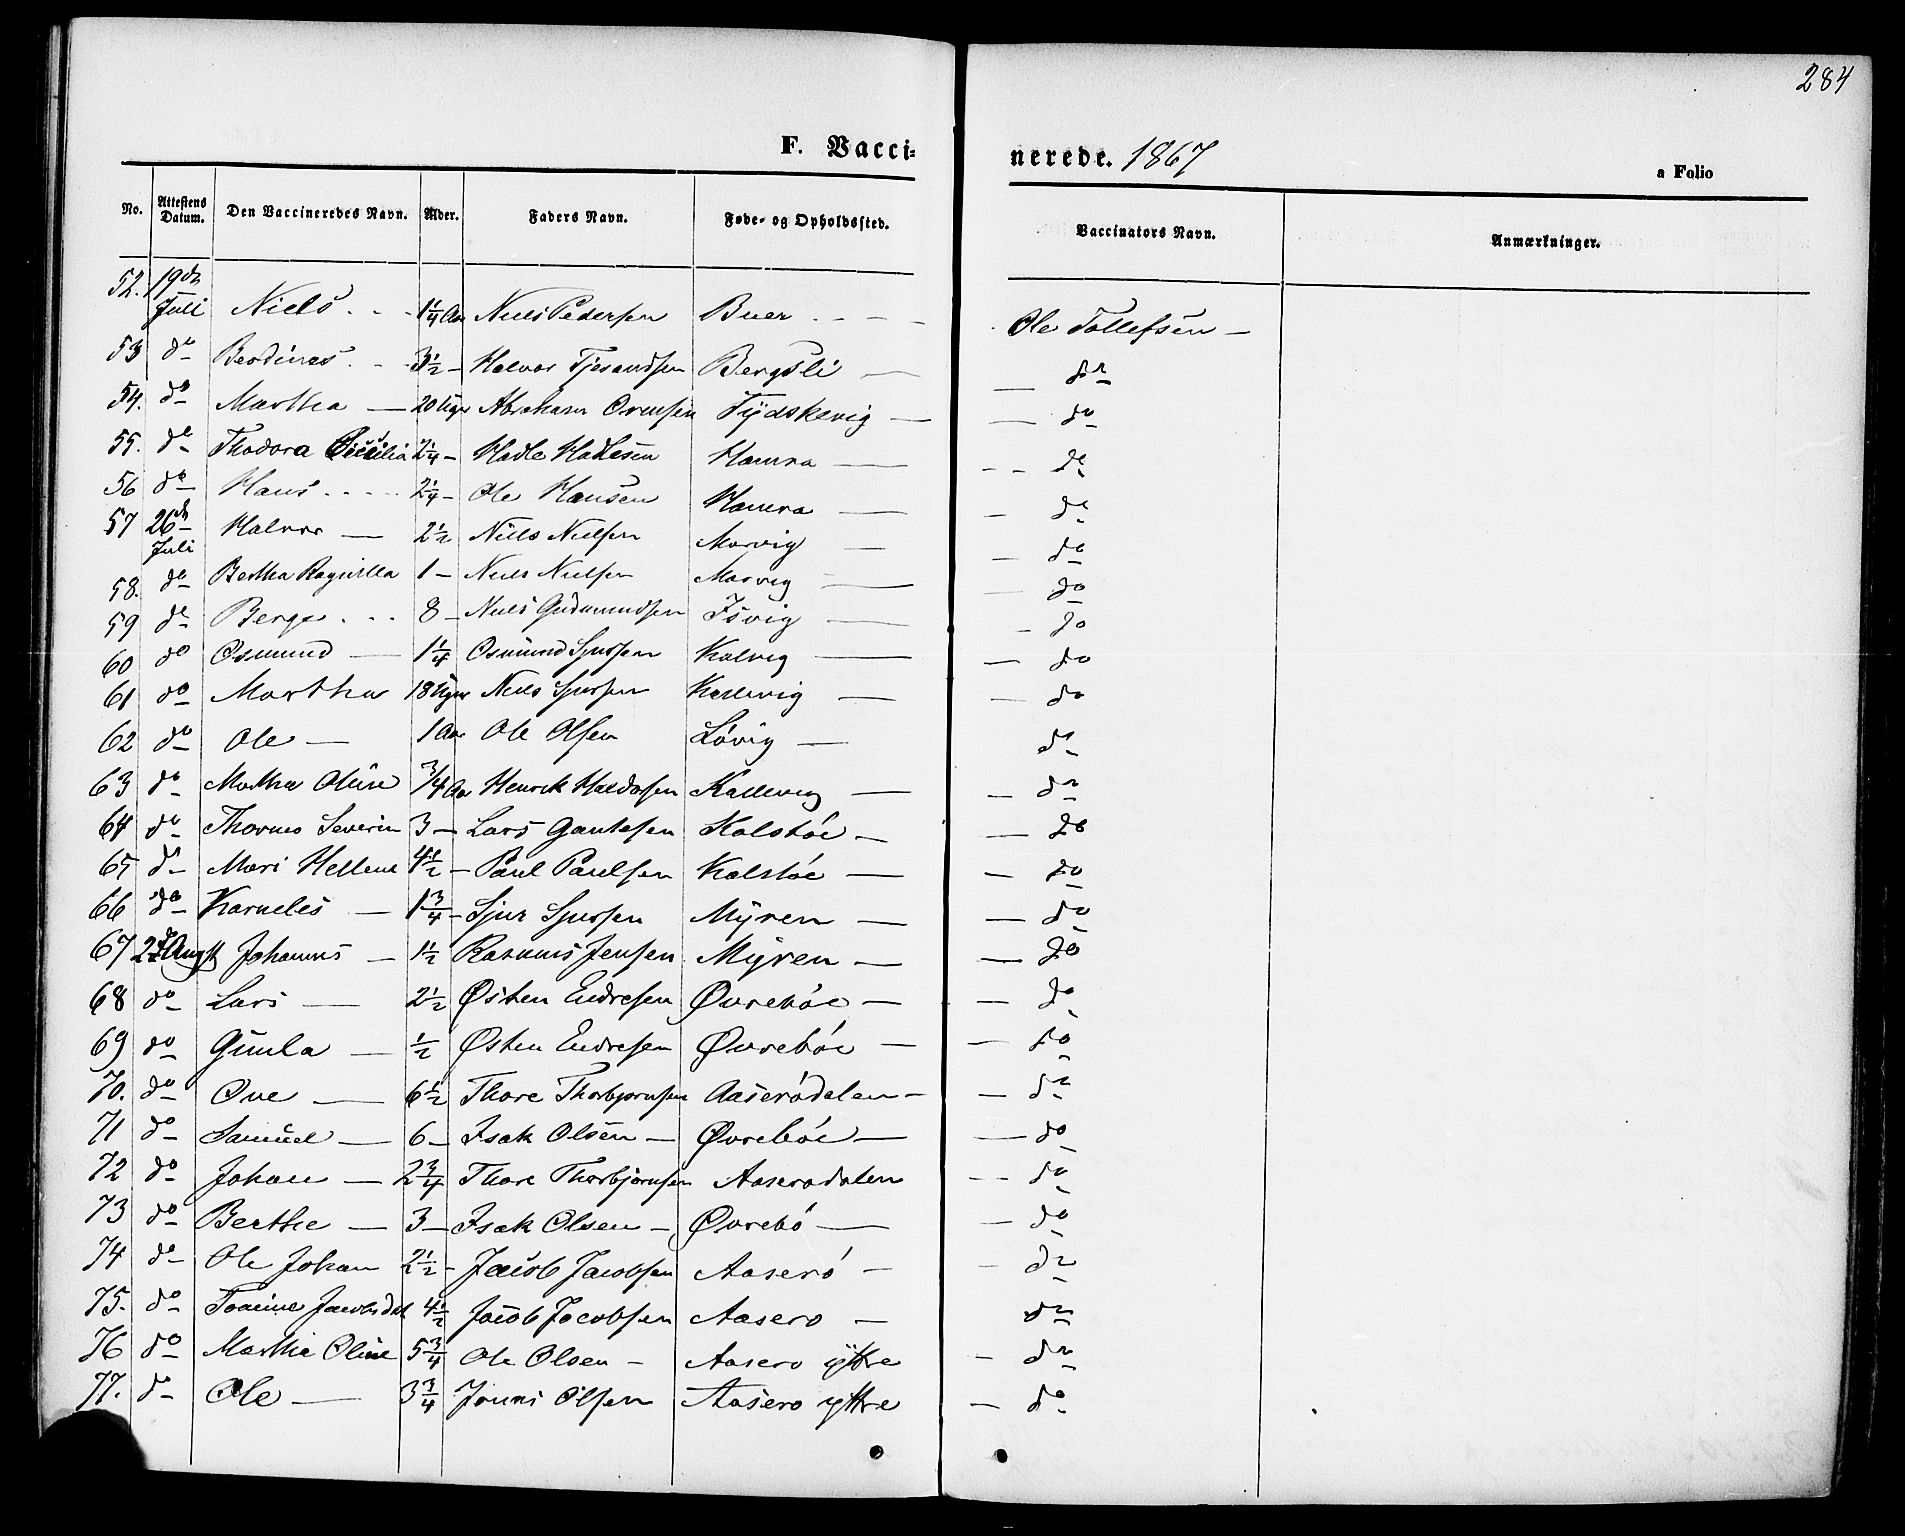 284
F. Vacci- nerede. 1867
a Folio
No. Attestens Datum. Den Vaccineredes Navn. Alder. Faders Navn. Føde- og Opholdssted. Vaccinators Navn. Anmærkninger.
52. 19de Juli Niels 1 1/4 Aar Niels Pedersen Buer Ole Tollefsen
53 do 3 1/2 Halvor Bergsli do
54. do Martha 20 Uger Abraham Tydskevig do
55. do Thodora Cicilia 2 1/4 Hadle Hadlesen Hamra do
56 do Hans 2 1/4 Ole Hansen Hamra do
57 26de Juli Halvor 2 1/2 Niels Nielsen Marvig do
58. do Bertha Ragnilla 1 Niels Nielsen Marvig do
59 do Berge 8 Niels Gudmundsen Isvig do
60 do Osmund 1 1/4 Osmund Sjursen Kalvig do
61 do Martha 18 Uger Niels Sjursen Kallevig do
62 do Ole 1 Aar Ole Olsen Løvig do
63 do Martha Oline 3/4 Aar Henrik Haldorsen Kallevig do
64 do Thomas Severin 3 Lars Gautesen Kolstøe do
65 do Mari Hellene 4 1/2 Paul Paulsen Kolstøe do
66 do Karneles 1 3/4 Sjur Sjursen Myren do
67 27 Augst Johannes 1 1/2 Rasmus Jensen Myren do
68 do Lars 2 1/2 Østen Endresen Øvrebøe do
69 do Gunla 1/2 Østen Endresen Øvrebøe do
70. do Ove 6 1/2 Thore Thorbjørnsen Aaserødalen do
71 do Samuel 6 Isak Olsen Øvrebøe do
72 do Johan 2 3/4 Thore Thorbjørnsen Aaserodalen do
73 do Berthe 3 Isak Olsen Øvrebø do
74 do Ole Johan 2 1/2 Jacob Jacobsen Aaserø do
75. do 4 1/2 Jacob Jacobsen Aasero do
76 do Marthe Oline 5 3/4 Ole Olsen Aasero yttre do
77. do Ole 3 3/4 Jonas Olsen Aasero yttre do